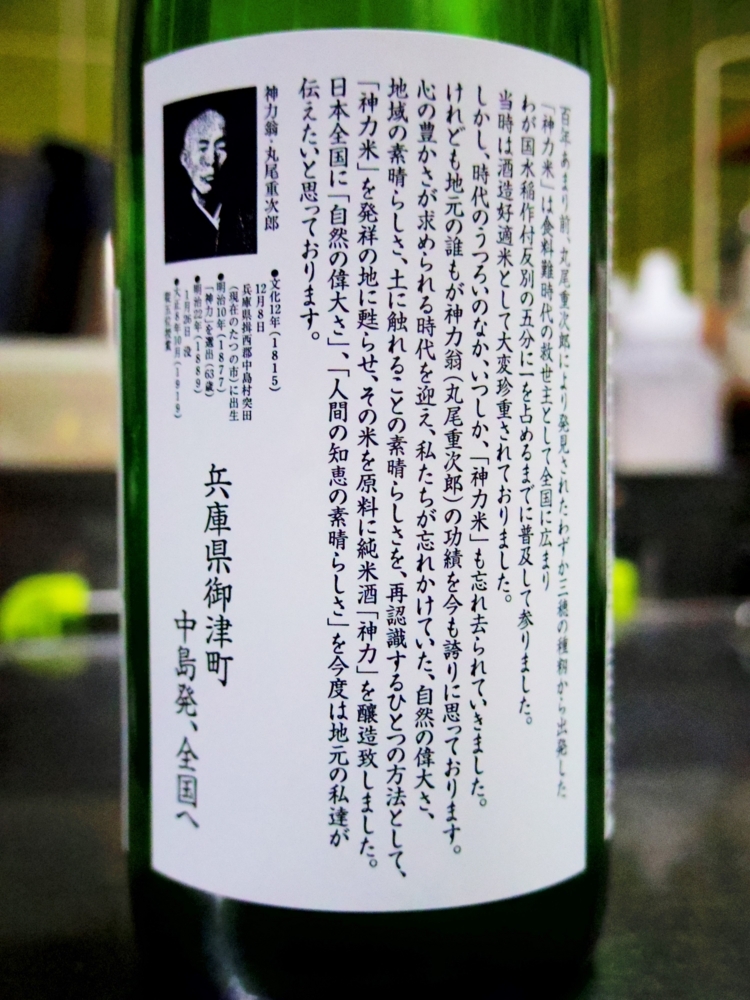 百年あまり前、丸尾重次郎により発見されたわずか三穂の種籾から出発した
「神力米」は食料難時代の救世主として全国に広まり
わが国水稲作付反別の五分に一を占めるまでに普及して参りました。
当時は酒造好適米として大変珍重されておりました。
しかし、時代のうつろいのなか、いつしか、「神力米」も忘れ去られていきました。
けれども地元の誰もが神力翁(丸尾重次郎)の功績を今も誇りに思っております。
心の豊かさが求められる時代を迎え、私たちが忘れかけていた、自然の偉大さ、
地域の素晴らしさ、土に触れることの素晴らしさを、再認識するひとつの方法として、
「神力米」を発祥の地に甦らせ、その米を原料に純米酒「神力」を醸造致しました。
日本全国に「自然の偉大さ」、「人間の知恵の素晴らしさ」を今度は地元の私達が
伝えたいと思っております。
神力翁・丸尾重次郎
●文化12年(1815)
12月8日
兵庫県揖西郡中島村突田
(現在のたつの市)に出生
●明治10年(1877)
「神力」を選出(63歳)
●明治22年(1889)
1月26日 没
●大正8年10月(1919)
兵庫県御津町
中島発、全国へ